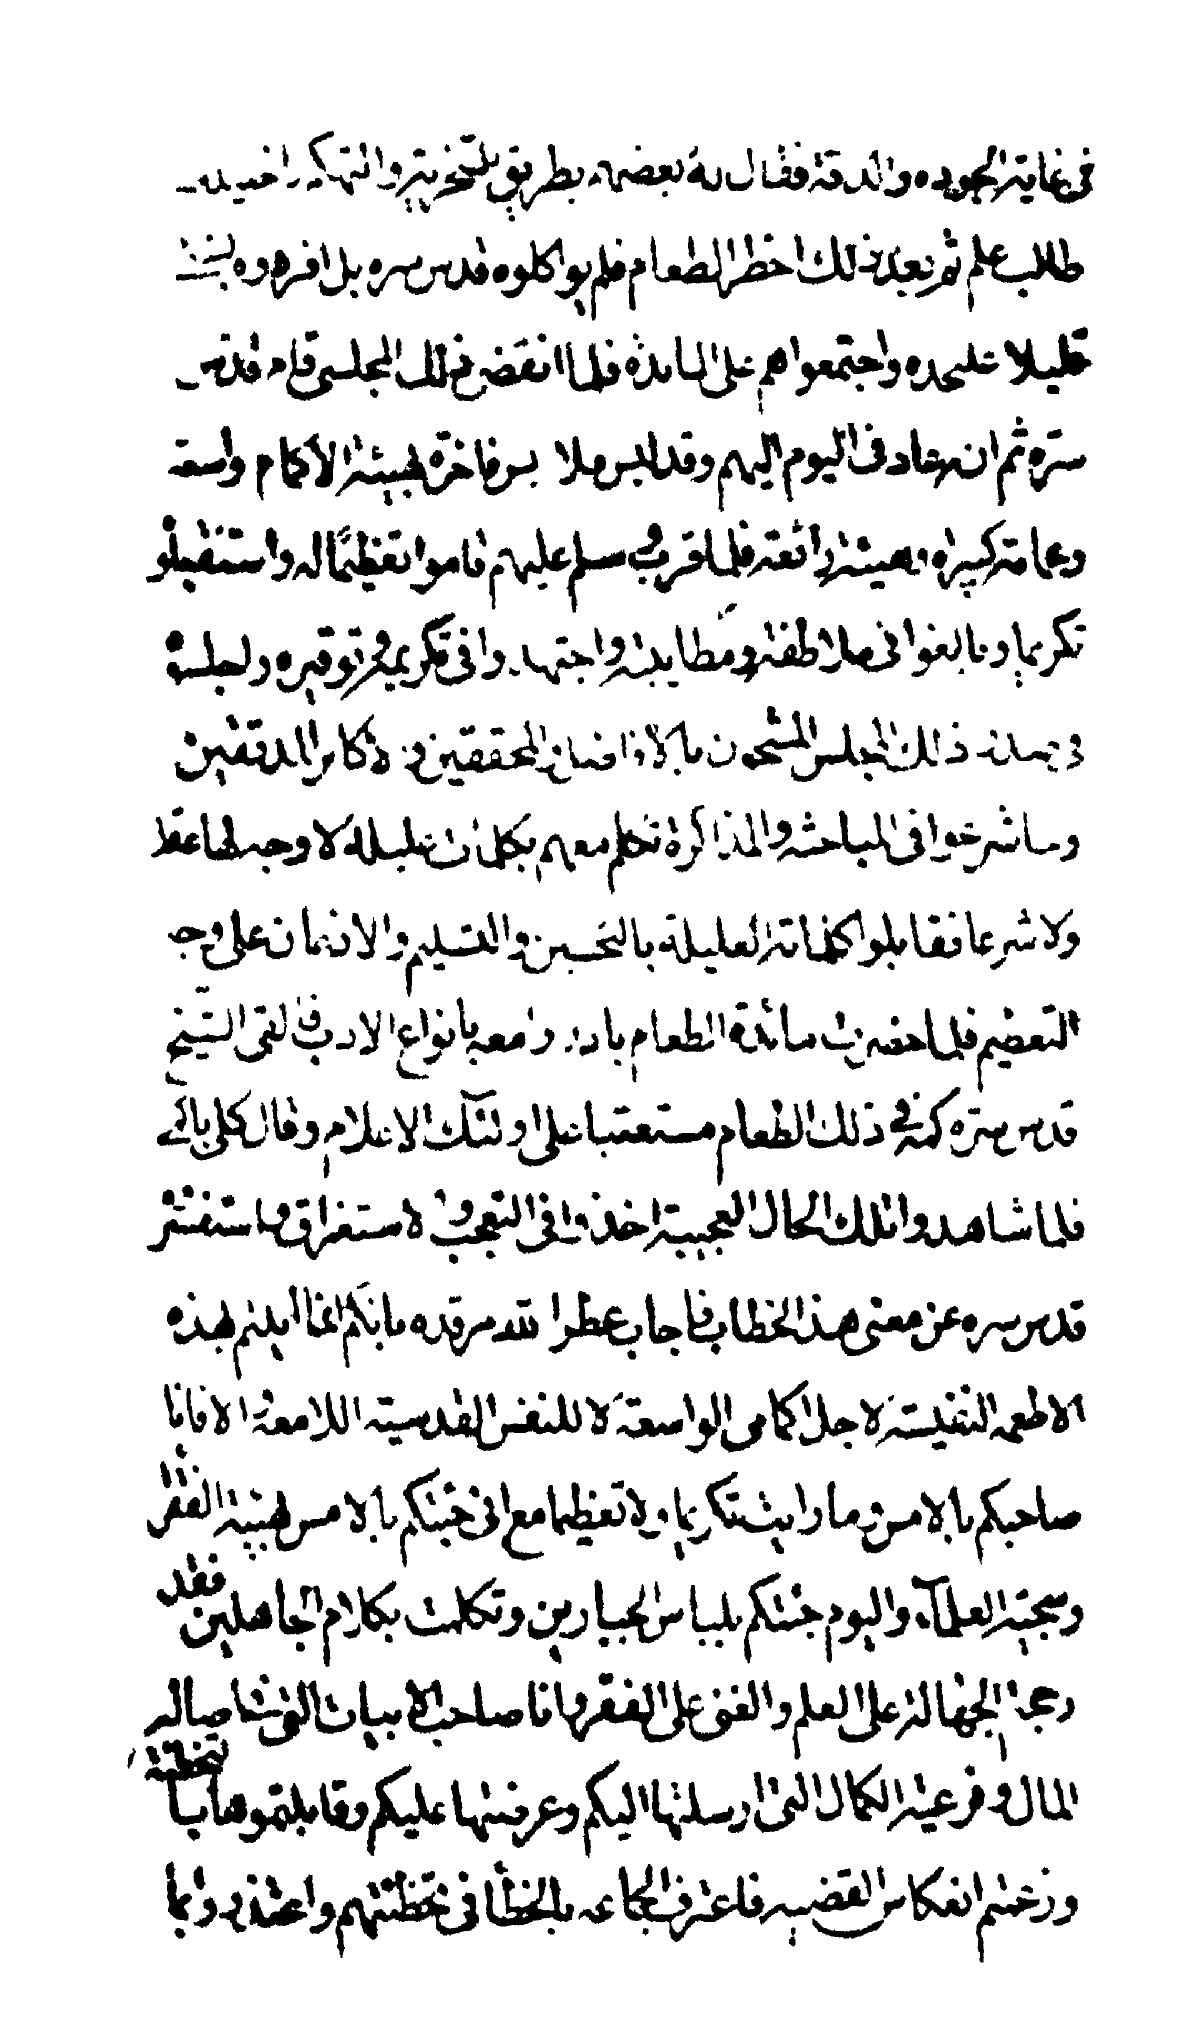 فى غاية الجوده والدقة فقال له بعضهم بطريق السخرية والتهكم اخيلك
طالب علم ثم بعد ذلك احضر الطعام فلم يواكلوه قدس سره بل افردوه بشئ
قليلا عليحده واجتمعوا هم على المائدة فلما انقضى ذلك المجلس قام قدس
سره ثم انه عاد فى اليوم اليهم وقد لبس ملابس فاخرة بهيئة الاكمام واسعة
وعمامة كبيرة وهيئة رائعة فلما قرب وسلم عليهم قاموا تعظيما له واستقبلو
تكريما وبالغوا فى ملاطفة ومطايبة واجتهدوا فى تكريمه وتوقيره واجلسوه
فى صدر ذلك المجلس المشحون بالافاضل المحققين والاكابر المدققين
ولما شرعوا فى المباحثة والمذاكرة تكلم معهم بكلمات عليلة لا وجه لها عقلا
ولا شرعا فقابلوا كلماته العليلة بالتحسين والتسليم والاذعان على وجه
التعظيم فلما حضرت مائدة الطعام بادروا معه بانواع الادب فالقى الشيخ
قدس سره كمه فى ذلك الطعام مستعتبا على اولئك الاعلام وقال كل ياكمى
فلما شاهدوا تلك الحال العجيبة اخذوا فى التعجب والاستغراق واستفسر
قدس سره عن معنى هذا الخطاب فاجاب عطر الله مرقده بانكم انما اتيتم بهذه
الاطعمة النفيسة لاجل اكمامى الواسعة لا للنفس القدسية اللامعة والا فانا
صاحبكم بالامس وما رايت تكريما ولا تعظيما مع انى جئتكم بالامس بهيئة الفقر
وسجية العلماء واليوم جئتكم بلباس الجبارين وتكلمت بكلام الجاهلين فقد
رجحتم الجهالة على العلم والغنى على الفقر وانا صاحب الابيات التى فى اصالة
المال وفرعية الكمال التى ارسلتها اليكم وعرضتها عليكم وقابلتموها بالتخطئة
وزعمتم انعكاس القضية فاعترف الجماعة بالخطأ فى تخطئتهم واعتذروا بما